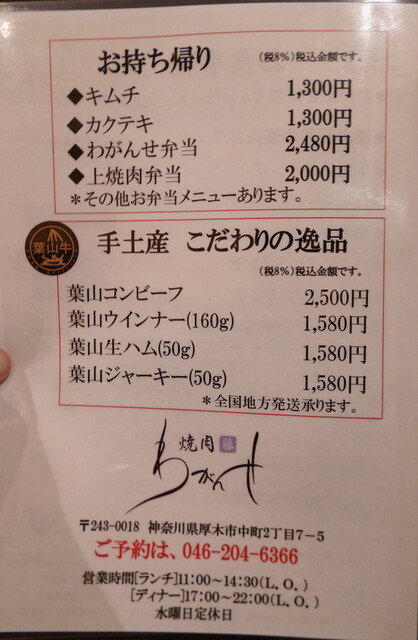 お持ち帰り (税8%)税込金額です。
◆キムチ 1,300円
◆カクテキ 1,300円
◆わがんせ弁当 2,480円
◆上焼肉弁当 2,000円
＊その他お弁当メニューあります。
葉山牛
手土産 こだわりの逸品
(税8%)税込金額です。
葉山コンビーフ 2,500円
葉山ウインナー(160g) 1,580円
葉山生ハム(50g) 1,580円
葉山ジャーキー(50g) 1,580円
＊全国地方発送承ります。
焼肉
わがんせ
〒243-0018 神奈川県厚木市中町2丁目7－5
ご予約は、046-204-6366
営業時間[ランチ]11:00～14:30(L.O.)
[ディナー]17:00～22:00(L.O.)
水曜日定休日